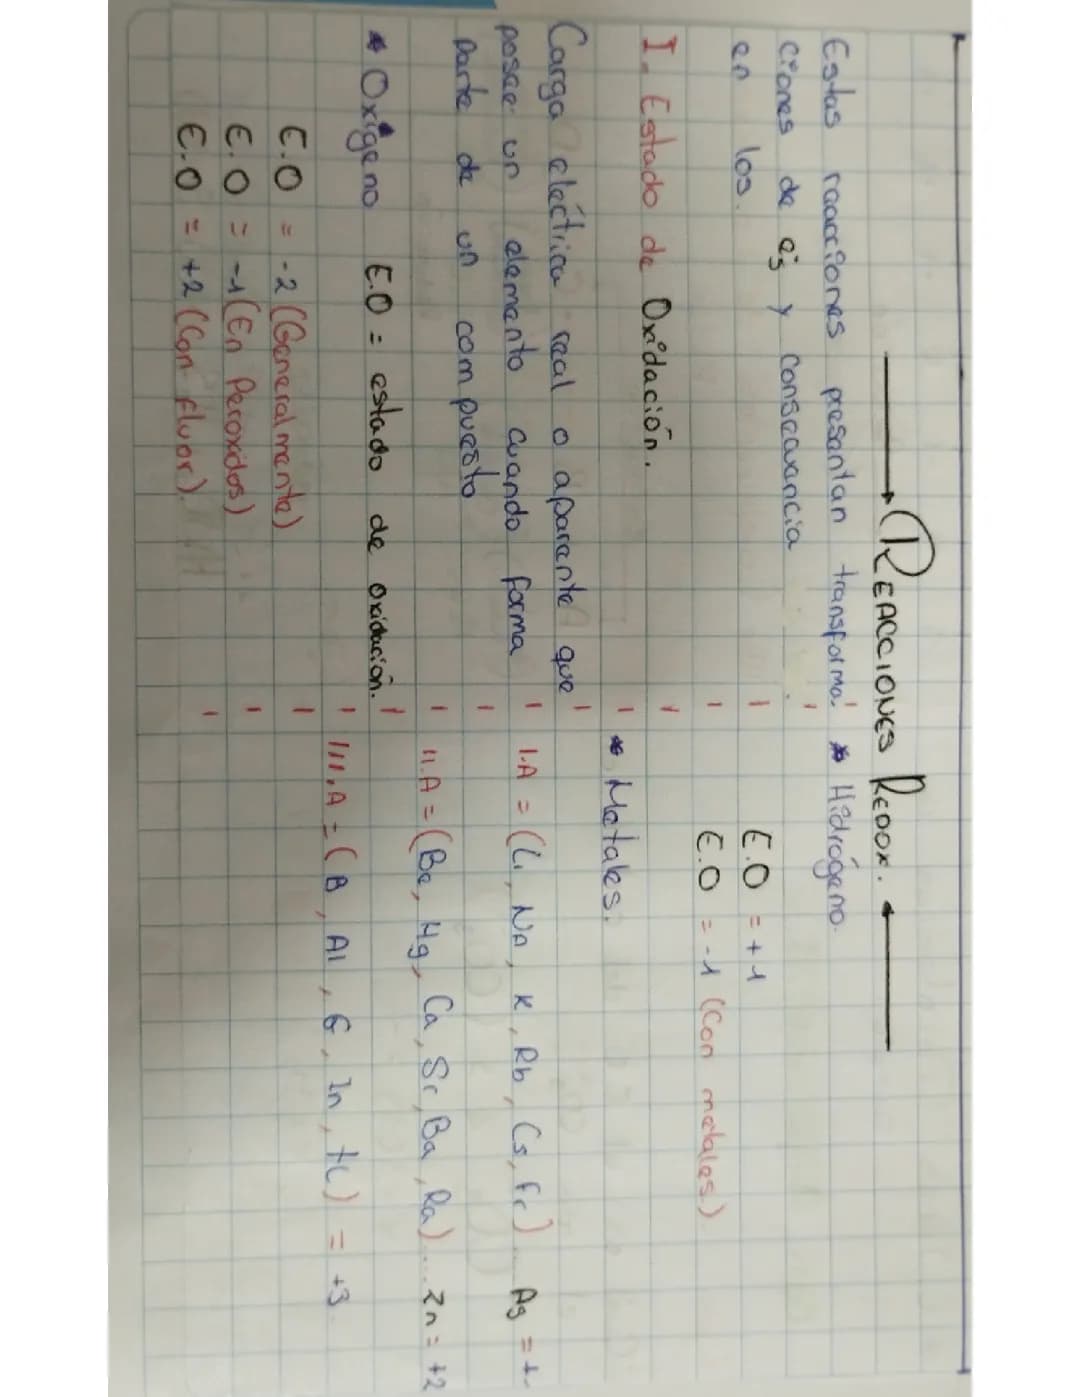 REACCIONES REDOX.
Estas reacciones presentan transforma-
ciones de e's y consecuencia
en los.
I. Estado de Oxidación.
Carga eléctrica real o aparente que
posee un elemento cuando forma
parte de un compuesto
* Oxígeno E.O = estado de oxidación.
E.O = -2 (Generalmente)
E.O = -1 (En Peroxidos)
E.O = +2 (Con fluor).
* Hidrógeno.
E.O = +1
E.O = -1 (Con metales.)
* Metales.
I.A = (Li, Na, K, Rb, Cs, Fr)... Ag = +
II.A = (Be, Mg, Ca, Sr, Ba, Ra)... Zn = +2
III.A = (B, Al, G, In, tl) = +3